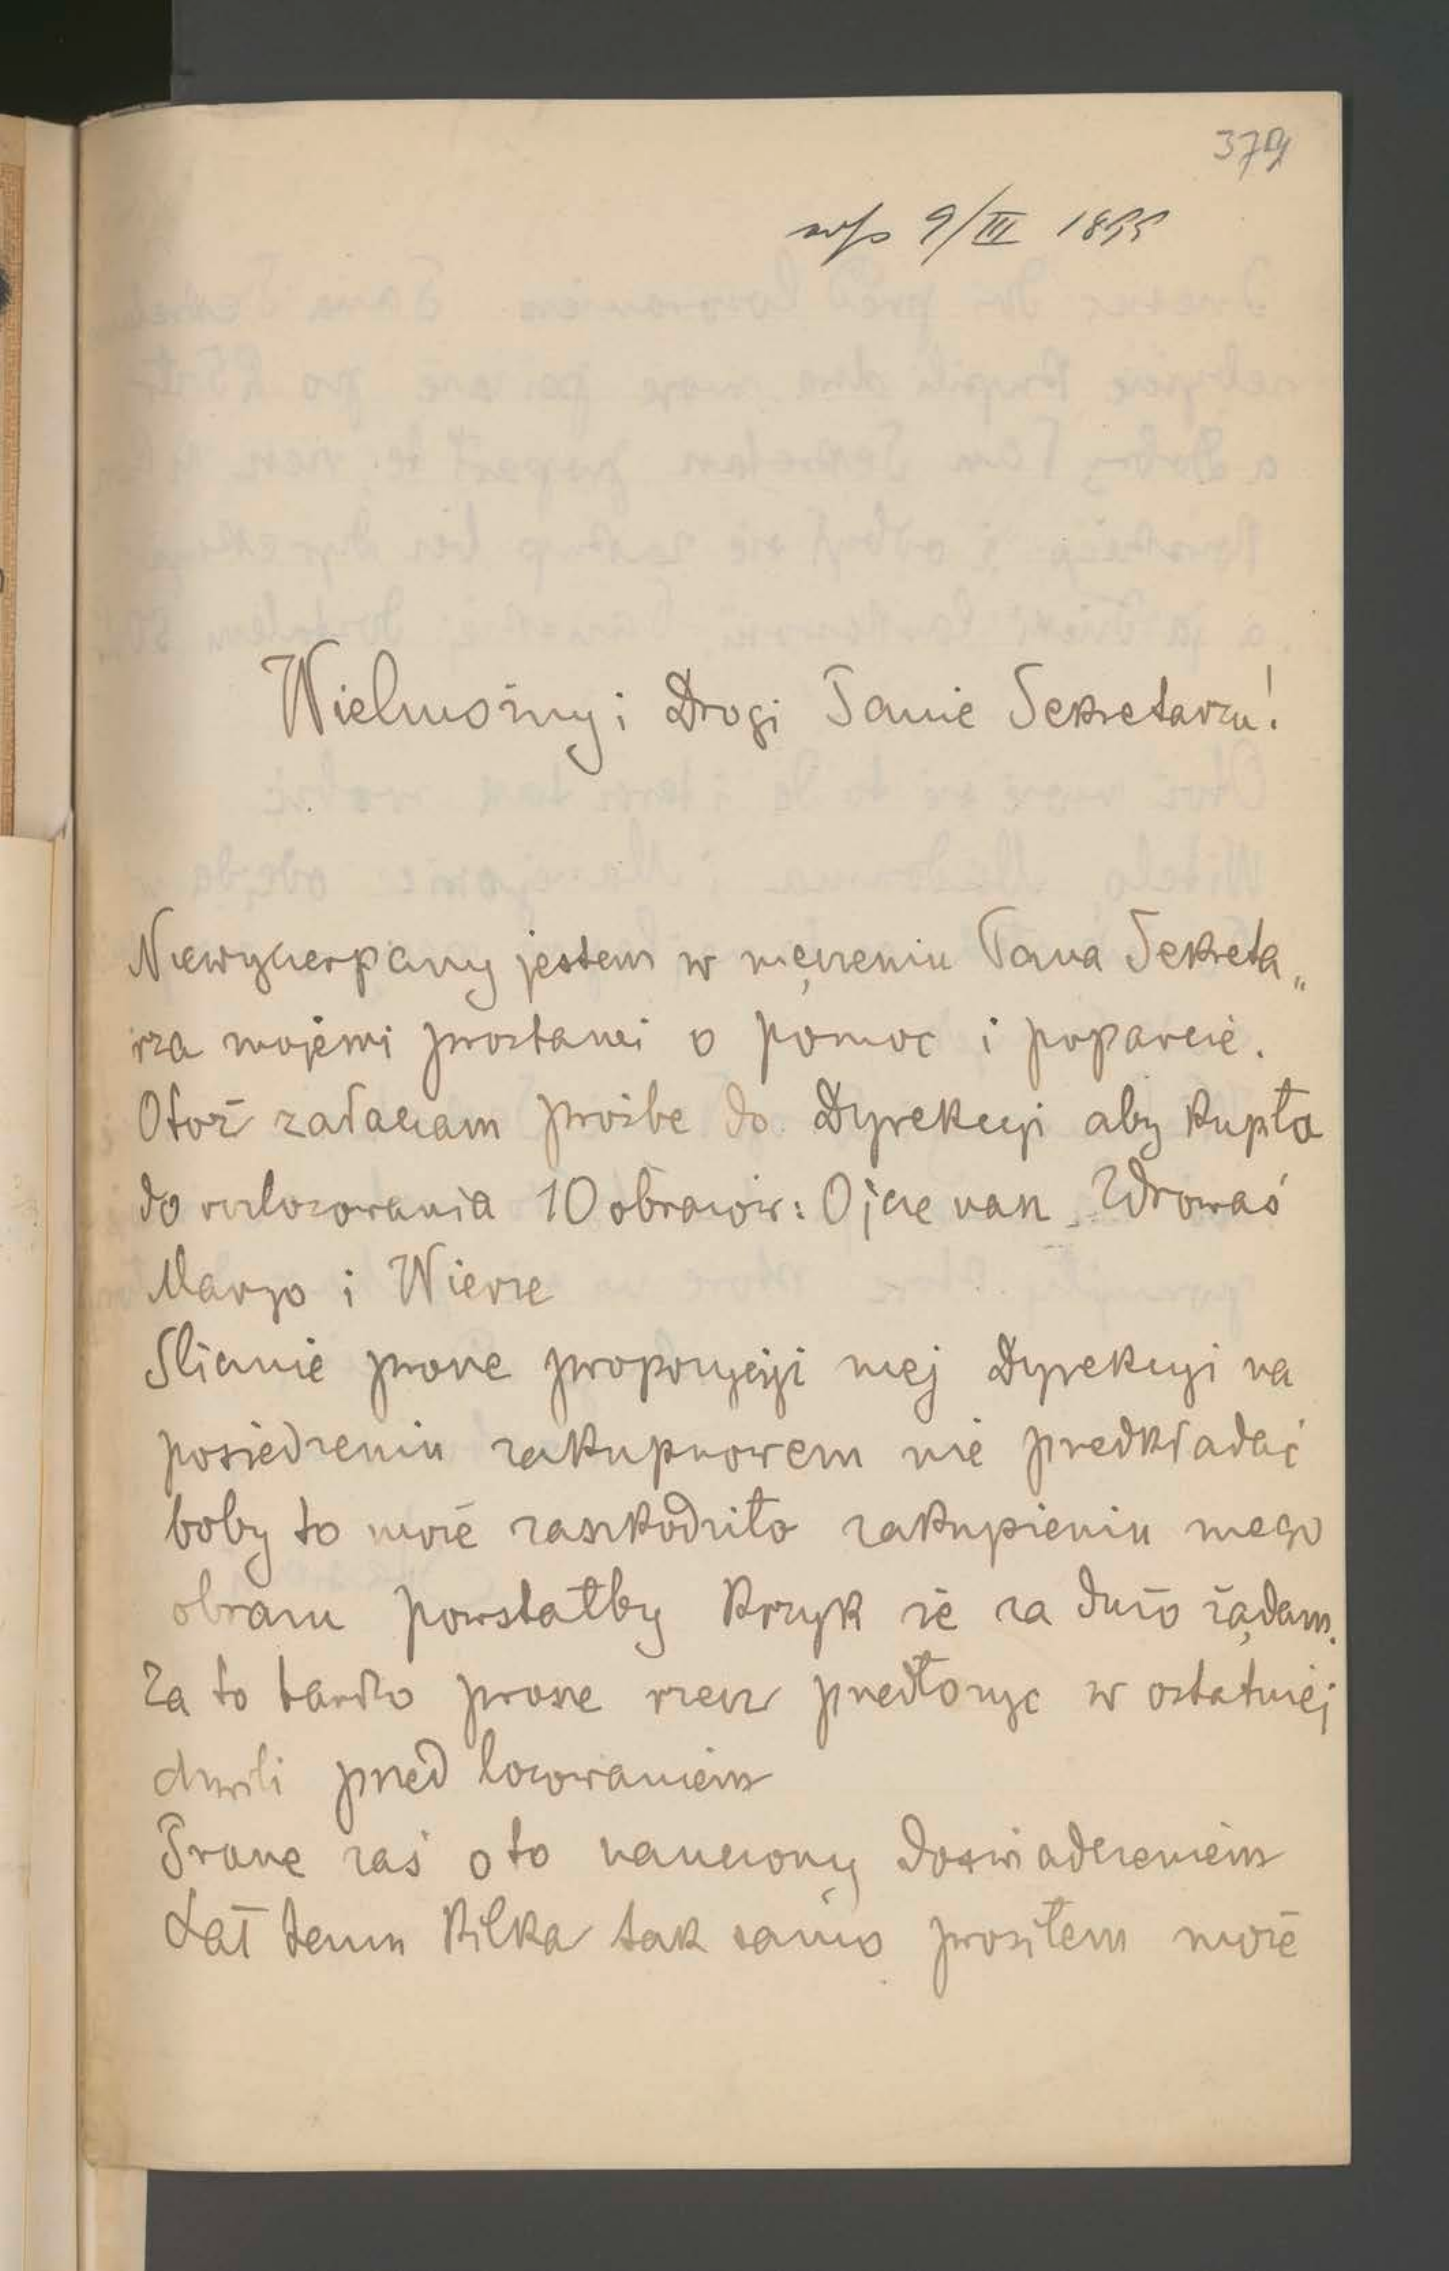 379
9/III 1899
Wielmożny i Drogi Panie Sekretarzu!
Niewyczerpany jestem w męczeniu Pana Sekreta„
rza mojemi prozbami o pomoc i poparcie.
Otoż załaczam prożbe do Dyrekcyi aby kupła
do rozlozowania 10 obrazów: Ojcze nasz Zdrowaś
Maryo i Wierze
Slicznie prosze propozycyji mej Dyrekcyi na
posiedzeniu zakupnowem nie przedkładać
boby to może zaszkodziło zakupieniu mego
obrazu powstałby krzyk że za dużo żądam.
Za to bardzo prosze rzecz przedłożyc w ostatniej
chwili przed lozowaniem
Prosze zaś o to nauczony doswiadczeniem
Lat temu kilka tak samo prosiłem może